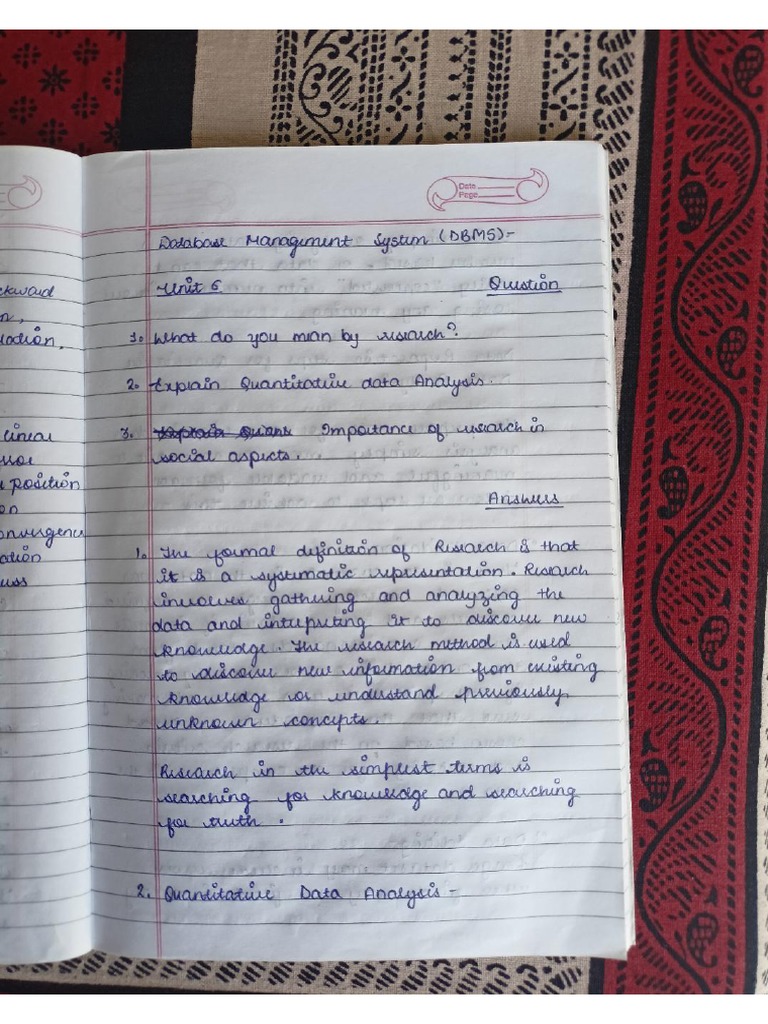 Date
Page
Database Management System (DBMS):-
Unit 6 Question
1. What do you mean by research?
2. Explain Quantitative data Analysis.
3. Importance of research in
social aspects.
Answers
1. The formal definition of Research is that
it is a systematic representation. Research
involves gathering and analyzing the
data and intreputing it to discover new
knowledge. The research method is used
to discover new information from existing
knowledge or understand previously
unknown concepts.
Research in the simplest terms is
searching for knowledge and searching
for truth.
2. Quantitative Data Analysis -
ckward
n,
linear
position
on
onvergenc
ation
uss